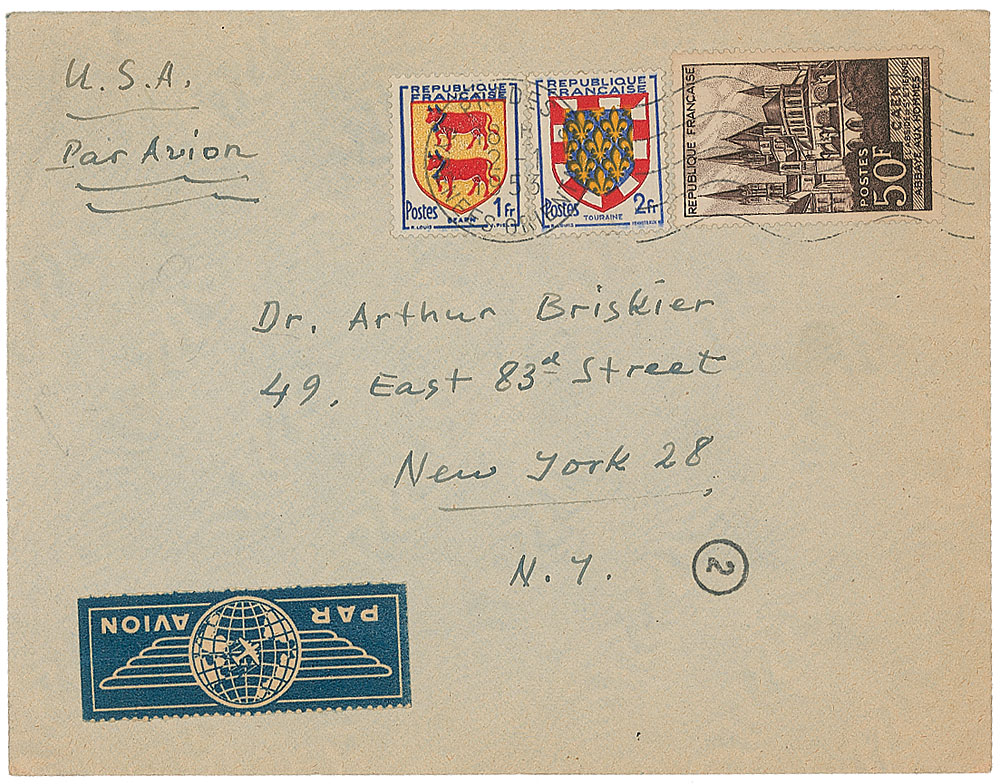 U.S.A.
Par Avion
REPUBLIQUE
FRANÇAISE
Postes 1fr
BEARN
R. LOUIS
REPUBLIQUE
FRANÇAISE
Postes 2fr
TOURAINE
R. LOUIS
REPUBLIQUE FRANÇAISE
POSTES
50F
CAEN
ABBAYE AUX HOMMES
18
2-1
1953
Dr. Arthur Briskier
49, East 83d Street
New York 28,
N.Y.
2
PAR
AVION